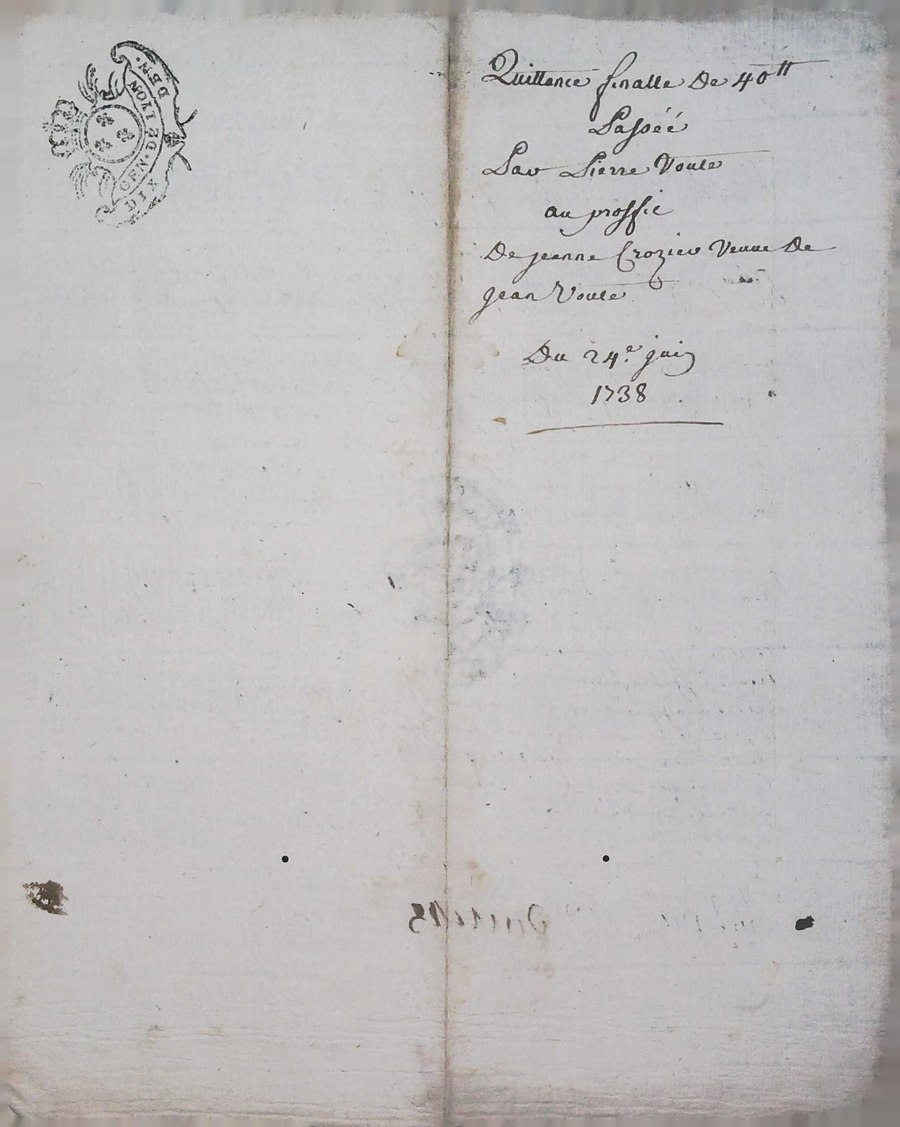 GEN. DE LYON.
DIX DEN.
Quittance finalle De 40tt
Passéé
Par Pierre Voute
au proffit
De jeanne Crozier Veuue De
jean Voute
Du 24.e juin
1738